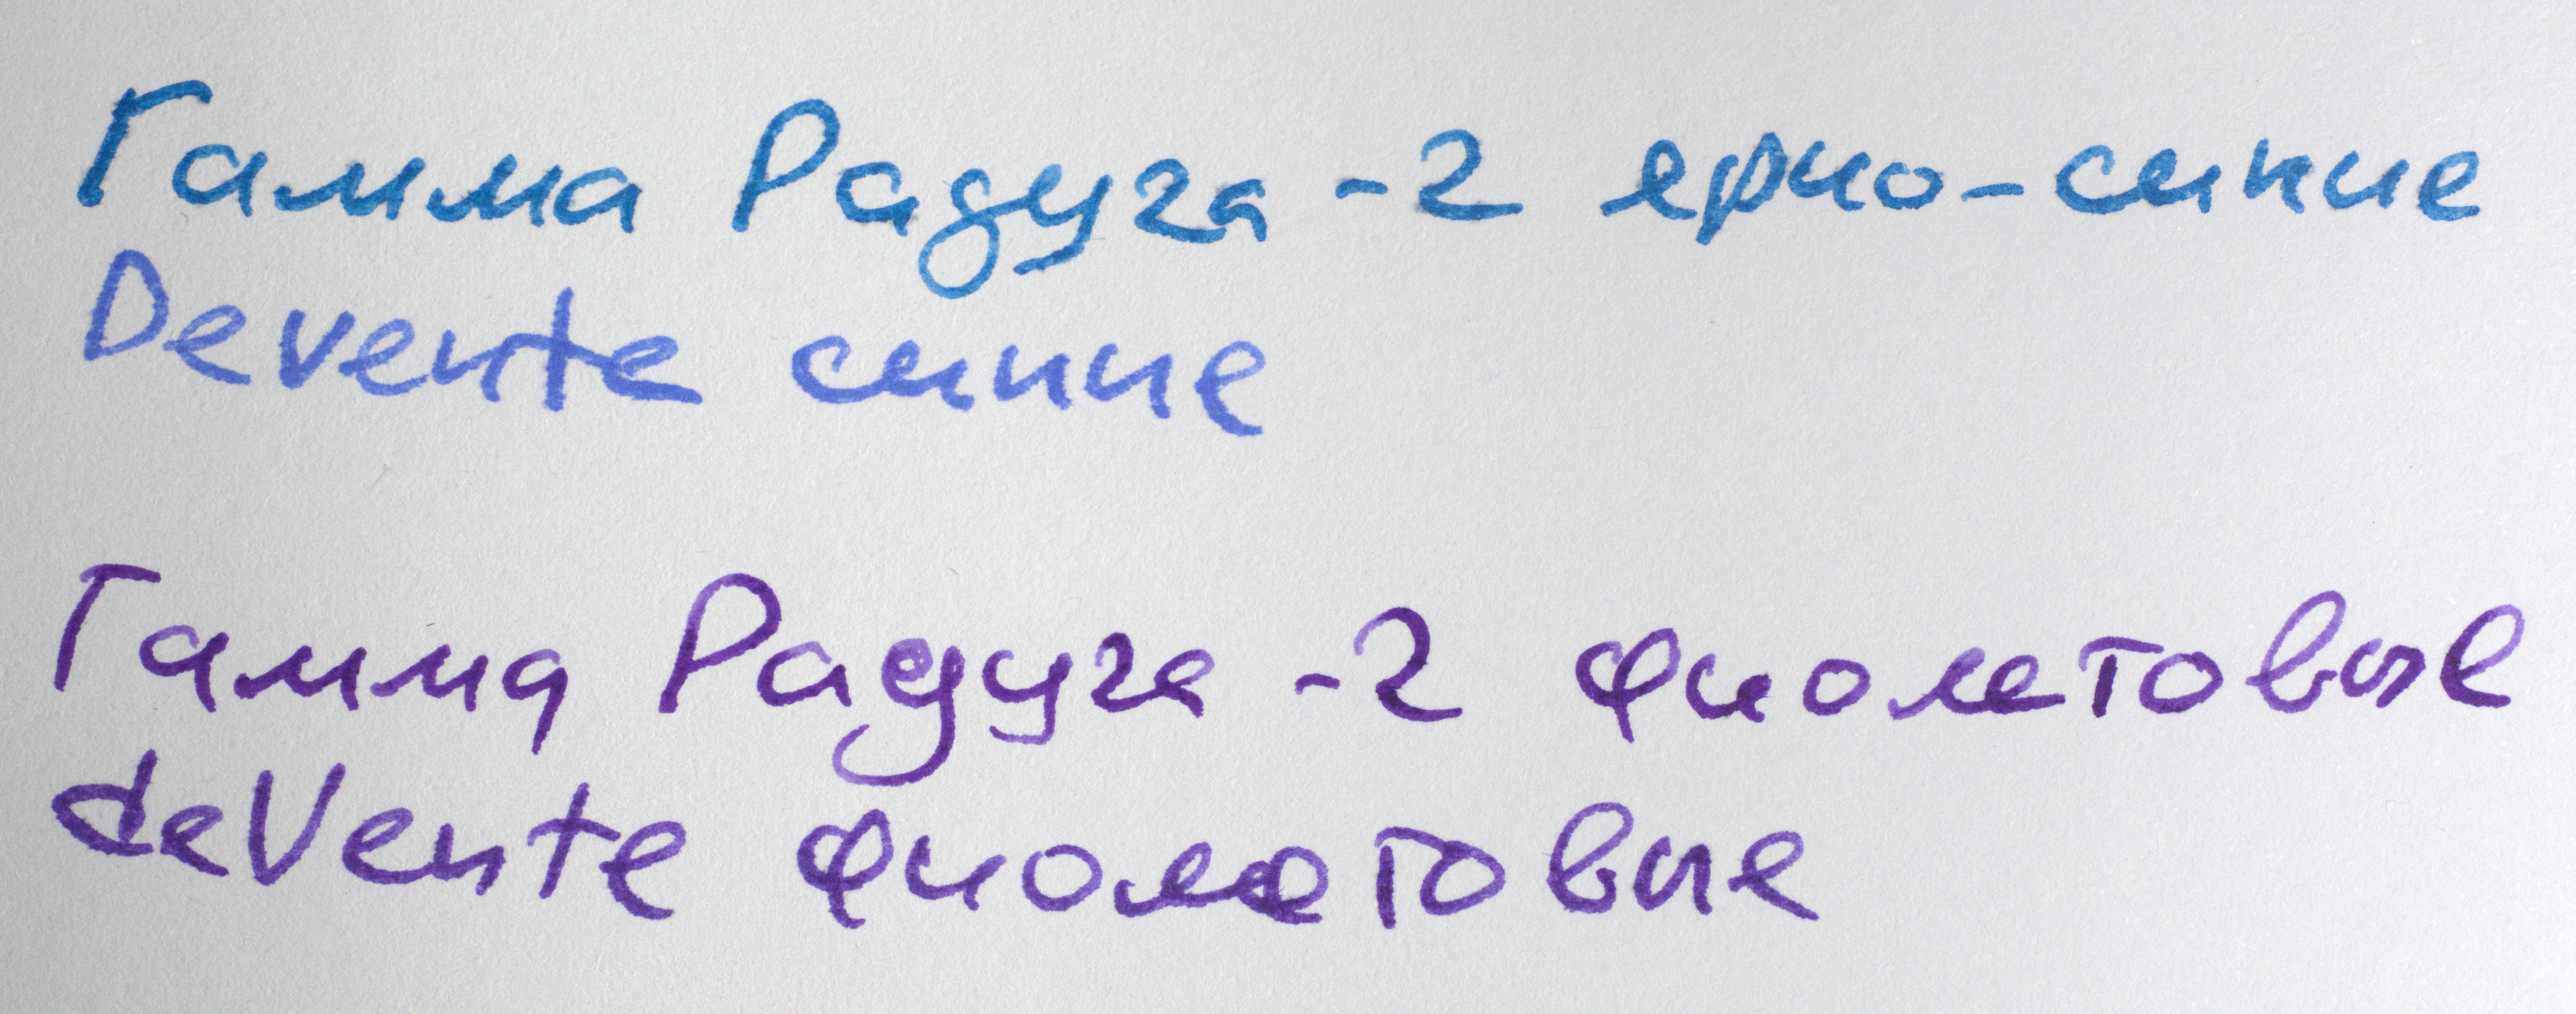 Гамма Радуга -2 ярко-синие
Devente синие
Гамма Радуга -2 фиолетовые
deVente фиолетовые